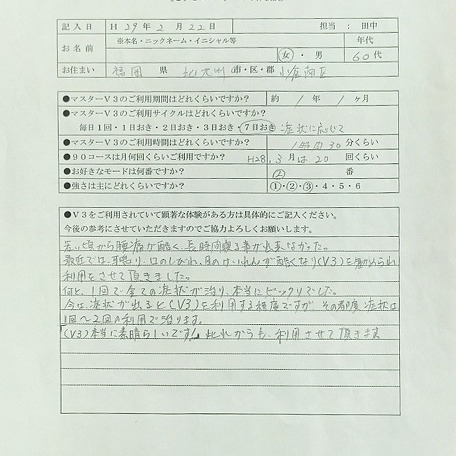 記入日 H 29年 2月 22日 担当：田中
お名前 ※本名・ニックネーム・イニシャル等 年代
女・男 60代
お住まい 福岡 県 北九州 市・区・郡 小倉南区
●マスターV3のご利用期間はどれくらいですか？ 約 1年 1ヶ月
●マスターV3のご利用サイクルはどれくらいですか？
毎日1回・1日おき・2日おき・3日おき・7日おき 症状に応じて
●マスターV3のご利用時間はどれくらいですか？ 1時間30分くらい
●90コースは月何回くらいご利用ですか？ H28.3月は20回くらい
●お好きなモードは何番ですか？ ② 番
●強さは主にどれくらいですか？ ①・②・③・4・5・6
●V3をご利用されていて顕著な体験がある方は具体的にご記入ください。
今後の参考にさせていただきますのでご協力よろしくお願いします。
若い頃から腰痛が酷く、長時間寝る事が出来なかった。
最近では、耳鳴り、口のしびれ、目のけいれんが酷くなり(V3)を勧められ
利用をさせて頂きました。
何と、1回で全ての症状が治り、本当にビックリでした。
今は、症状が出ると(V3)を利用する程度ですが、その都度症状は
1回〜2回の利用で治ります。
(V3)本当に素晴らしいです!! 此れからも、利用させて頂きます